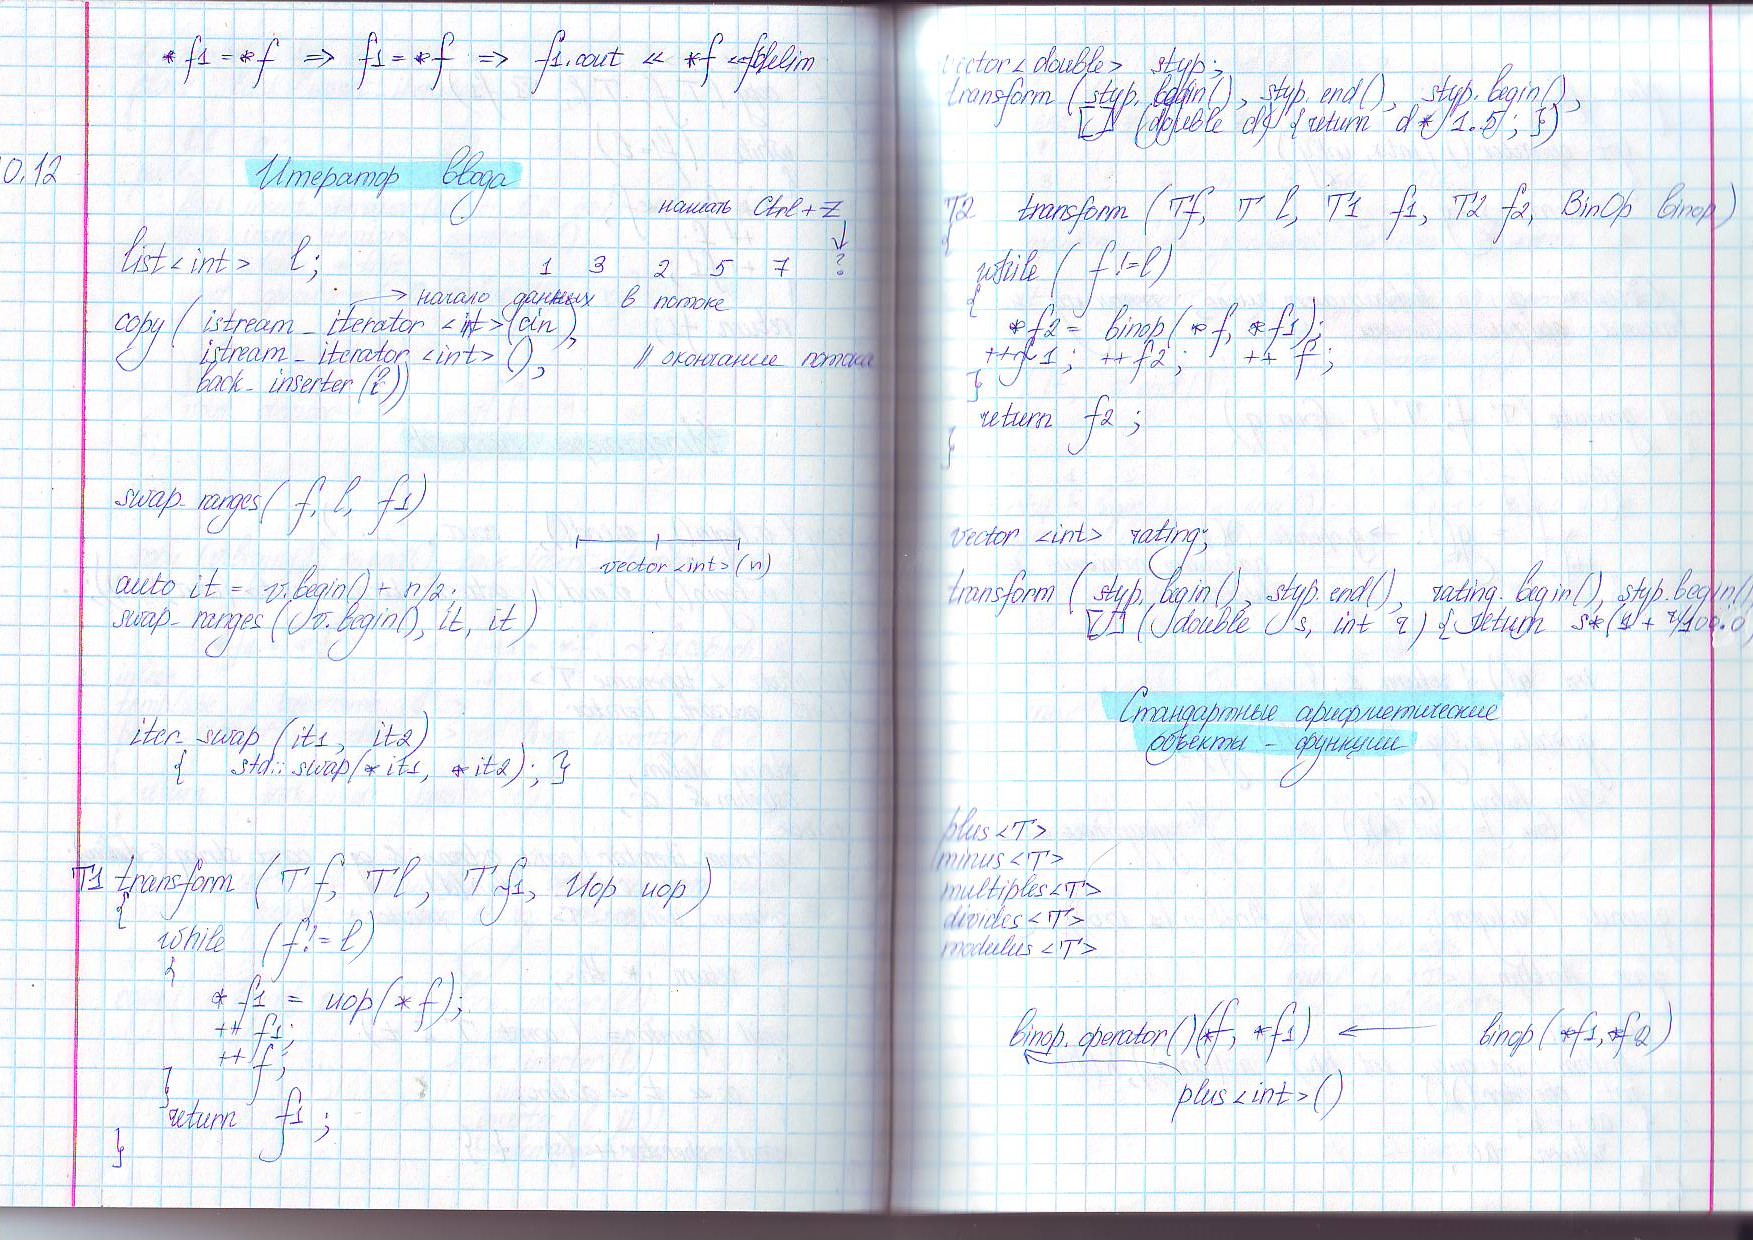 *f1 = *f => f1 = *f => f1.cout << *f << f1.delim
0.12
Итератор ввода
нажать Ctrl+Z
list<int> l; 1 3 2 5 7 ?
начало данных в потоке
copy ( istream_iterator <int>(cin),
istream_iterator <int> (), // окончание потока
back_inserter(l))
swap_ranges( f, l, f1)
vector<int>(n)
auto it = v.begin() + n/2;
swap_ranges (v.begin(), it, it)
iter_swap (it1, it2)
{ std::swap(*it1, *it2); }
T1 transform ( T f, T l, T f1, Uop uop)
{
while (f != l)
{
*f1 = uop(*f);
++ f1;
++ f;
}
return f1;
}
vector<double> styp;
transform ( styp.begin(), styp.end(), styp.begin(),
[] (double d) {return d * 1.5; })
T2 transform ( T f, T l, T1 f1, T2 f2, BinOp binop)
{
while ( f != l)
{
*f2 = binop(*f, *f1);
++f1; ++f2; ++ f;
}
return f2;
}
vector <int> rating;
transform ( styp.begin(), styp.end(), rating.begin(), styp.begin(),
[] (double s, int r) {return s*(1 + r/100.0
Стандартные арифметические
объекты - функции
plus<T>
minus<T>
multiples<T>
divides<T>
modulus<T>
binop.operator()(*f, *f1) ← binop(*f1, *f2)
plus<int>()